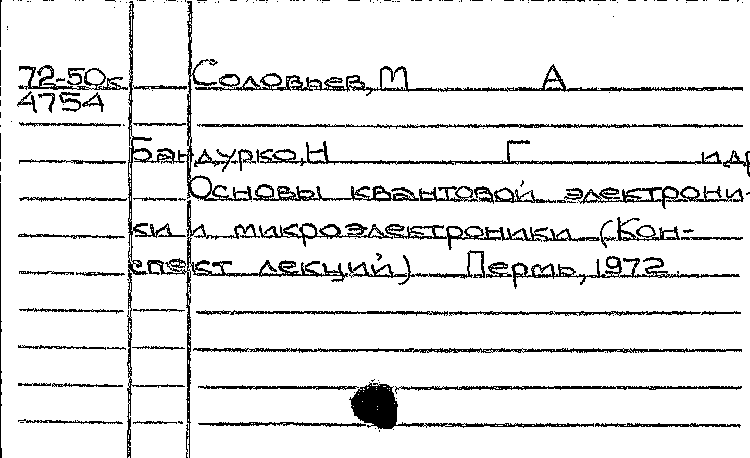 72-50к Соловьев, М А
4754
Бандурко, Н Г идр
Основы квантовой электрони-
ки и микроэлектроники (Кон-
спект лекций) Пермь, 1972